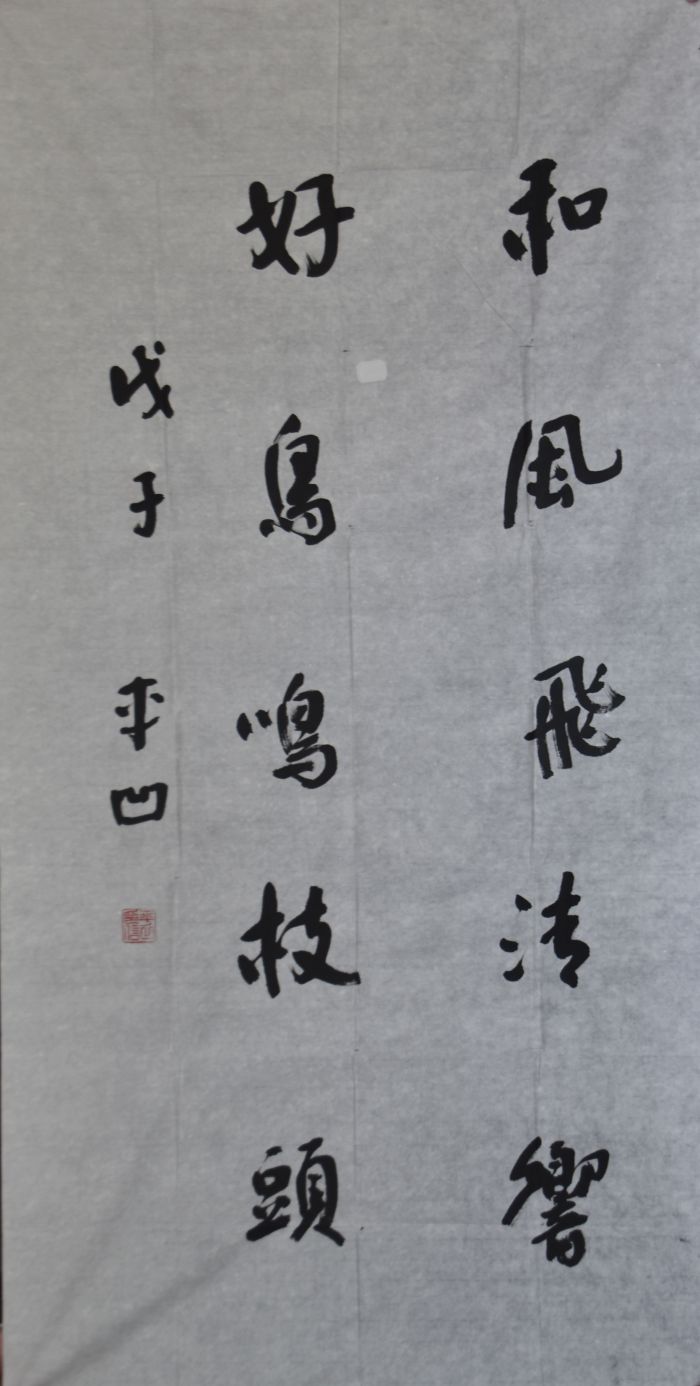 和風飛清響
好鳥鳴枝頭
戊子 平凹